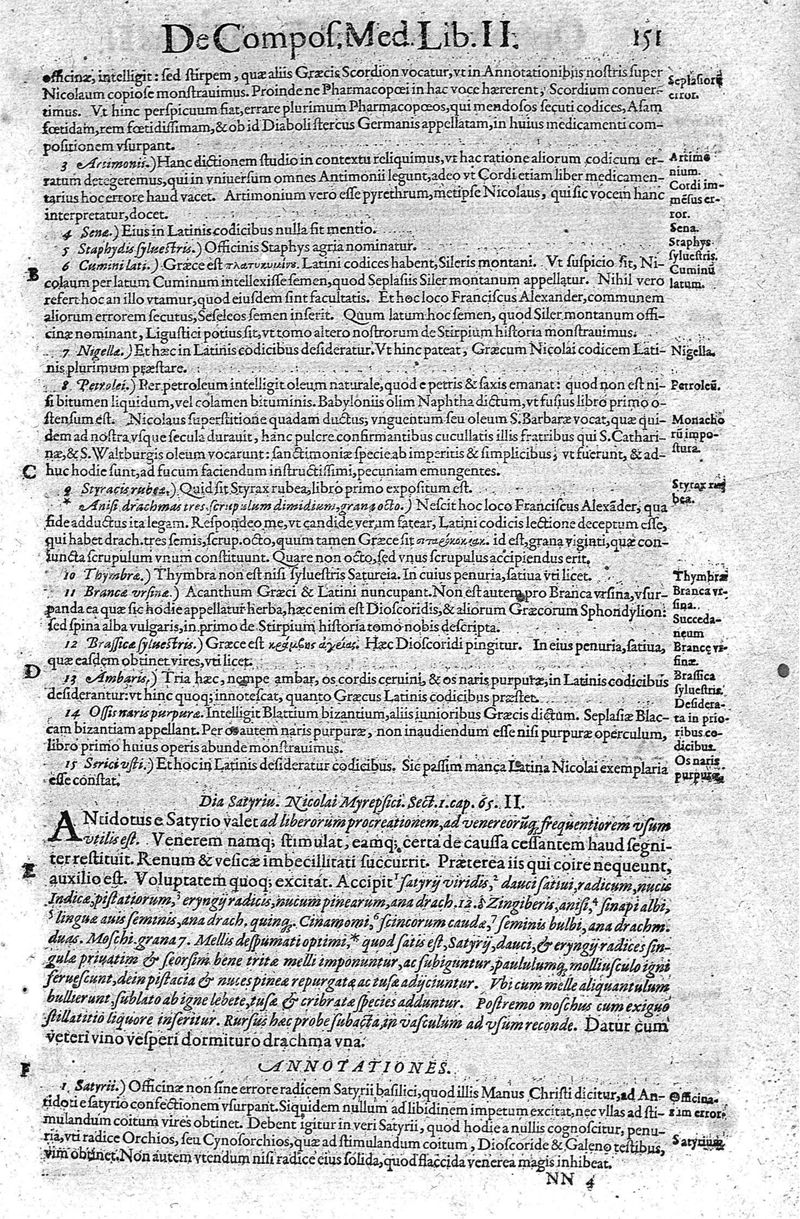 De Compos. Med. Lib. II. 151
officinæ, intelligit: sed stirpem, quæ aliis Græcis Scordion vocatur, vt in Annotationibus nostris super
Nicolaum copiose monstrauimus. Proinde ne Pharmacopœi in hac voce hærerent, Scordium conuer-
timus. Vt hinc perspicuum fiat, errare plurimum Pharmacopœos, qui mendosos secuti codices, Asam
fœtidam, rem fœtidissimam, & ob id Diaboli stercus Germanis appellatam, in huius medicamenti com-
positionem vsurpant.
Seplasiorũ
error.
3 Artimonii.) Hanc dictionem studio in contextu reliquimus, vt hac ratione aliorum codicum er-
ratum detegeremus, qui in vniuersum omnes Antimonii legunt, adeo vt Cordi etiam liber medicamen-
tarius hoc errore haud vacet. Artimonium vero esse pyrethrum, metipse Nicolaus, qui sic vocem hanc
interpretatur, docet.
Artimo
nium.
Cordi im-
mēsus er-
ror.
4 Senæ.) Eius in Latinis codicibus nulla fit mentio.
Sena.
5 Staphydis syluestris.) Officinis Staphys agria nominatur.
Staphys
syluestris.
B
6 Cumini lati.) Græce est πλατυκυμίνε. Latini codices habent, Sileris montani. Vt suspicio sit, Ni-
colaum per latum Cuminum intellexisse semen, quod Seplasiis Siler montanum appellatur. Nihil vero
refert hoc an illo vtamur, quod eiusdem sint facultatis. Et hoc loco Franciscus Alexander, communem
aliorum errorem secutus, Seseleos semen inserit. Quum latum hoc semen, quod Siler montanum offi-
cinæ nominant, Ligustici potius sit, vt tomo altero nostrorum de Stirpium historia monstrauimus.
Cuminũ
latum.
7 Nigellæ.) Et hæc in Latinis codicibus desideratur. Vt hinc pateat, Græcum Nicolai codicem Lati-
nis plurimum præstare.
Nigella.
8 Petrolei.) Per petroleum intelligit oleum naturale, quod e petris & saxis emanat: quod non est ni-
si bitumen liquidum, vel colamen bituminis. Babyloniis olim Naphtha dictum, vt fusius libro primo o-
stensum est. Nicolaus superstitione quadam ductus, vnguentum seu oleum S. Barbaræ vocat, quæ qui-
dem ad nostra vsque secula durauit, hanc pulcre confirmantibus cucullatis illis fratribus qui S. Cathari-
næ, & S. Waltburgis oleum vocarunt: sanctimoniæ specie ab imperitis & simplicibus, vt fuerunt, & ad-
huc hodie sunt, ad fucum faciendum instructissimi, pecuniam emungentes.
Petroleũ.
Monacho
rũ impo-
stura.
C
9 Styracis rubeæ.) Quid sit Styrax rubea, libro primo expositum est.
Styrax ru
bea.
* Anisi drachmas tres, scrupulum dimidium, grana octo.) Nescit hoc loco Franciscus Alexāder, qua
fide adductus ita legam. Respondeo me, vt candide verum fatear, Latini codicis lectione deceptum esse,
qui habet drach. tres semis, scrup. octo, quum tamen Græce sit id est, grana viginti, quæ con-
iuncta scrupulum vnum constituunt. Quare non octo, sed vnus scrupulus accipiendus erit.
10 Thymbræ.) Thymbra non est nisi syluestris Satureia. In cuius penuria, satiua vti licet.
Thymbra
11 Brancæ vrsinæ.) Acanthum Græci & Latini nuncupant. Non est autem pro Branca vrsina, vsur-
panda ea quæ sic hodie appellatur herba, hæc enim est Dioscoridis, & aliorum Græcorum Sphondylion:
sed spina alba vulgaris, in primo de Stirpium historia tomo nobis descripta.
Branca vr-
sina.
Succeda-
neum
Brancę vr-
sinæ.
12 Brassicæ syluestris.) Græce est κράμβης ἀγρίας. Hæc Dioscoridi pingitur. In eius penuria, satiua,
quæ easdem obtinet vires, vti licet.
Brassica
syluestris.
D
13 Ambaris.) Tria hæc, nempe ambar, os cordis ceruini, & os naris purpuræ, in Latinis codicibus
desiderantur: vt hinc quoq; innotescat, quanto Græcus Latinis codicibus præstet.
Desidera-
ta in prio-
ribus co-
dicibus.
14 Ossis naris purpuræ. Intelligit Blattium bizantium, aliis iunioribus Græcis dictũm. Seplasiæ Blac-
cam bizantiam appellant. Per os autem naris purpuræ, non inaudiendum esse nisi purpuræ operculum,
libro primo huius operis abunde monstrauimus.
Os naris
purpuræ.
15 Serici vsti.) Et hoc in Latinis desideratur codicibus. Sic passim manca Latina Nicolai exemplaria
esse constat.
Dia Satyriu. Nicolai Myrepsici. Sect. 1. cap. 65. II.
ANtidotus e Satyrio valet ad liberorum procreationem, ad venereorũq; frequentiorem vsum
vtilis est. Venerem namq; stimulat, eamq; certa de caussa cessantem haud segni-
ter restituit. Renum & vesicæ imbecillitati succurrit. Præterea iis qui coire nequeunt,
E
auxilio est. Voluptatem quoq; excitat. Accipit ¹satyrij viridis, ²dauci satiui, radicum, nucis
Indicæ, pistatiorum, ³eryngij radicis, nucum pinearum, ana drach. 12. Zingiberis, anisi, ⁴sinapi albi,
⁵linguæ auis seminis, ana drach. quinq. Cinamomi, ⁶scincorum caudæ, ⁷seminis bulbi, ana drachm.
duas. Moschi grana 7. Mellis despumati optimi, * quod satis est, Satyrij, dauci, & eryngij radices sin-
gulæ priuatim & seorsim bene tritæ melli imponuntur, ac subiguntur, paululumq; molliusculo igni
feruescunt, dein pistacia & nuces pineæ repurgatæ ac tusæ adijciuntur. Vbi cum melle aliquantulum
bullierunt, sublato ab igne lebete, tusæ & cribratæ species adduntur. Postremo moschus cum exiguo
stillatitio liquore inseritur. Rursus hæc probe subacta, in vasculum ad vsum reconde. Datur cum
veteri vino vesperi dormituro drachma vna.
F
ANNOTATIONES.
1 Satyrii.) Officinæ non sine errore radicem Satyrii basilici, quod illis Manus Christi dicitur, ad An-
tidoti e satyrio confectionem vsurpant. Siquidem nullum ad libidinem impetum excitat, nec vllas ad sti-
mulandum coitum vires obtinet. Debent igitur in veri Satyrii, quod hodie a nullis cognoscitur, penu-
ria, vti radice Orchios, seu Cynosorchios, quæ ad stimulandum coitum, Dioscoride & Galeno testibus,
vim obtinet. Non autem vtendum nisi radice eius solida, quod flaccida venerea magis inhibeat.
Officina-
rum error.
Satyrium
NN 4